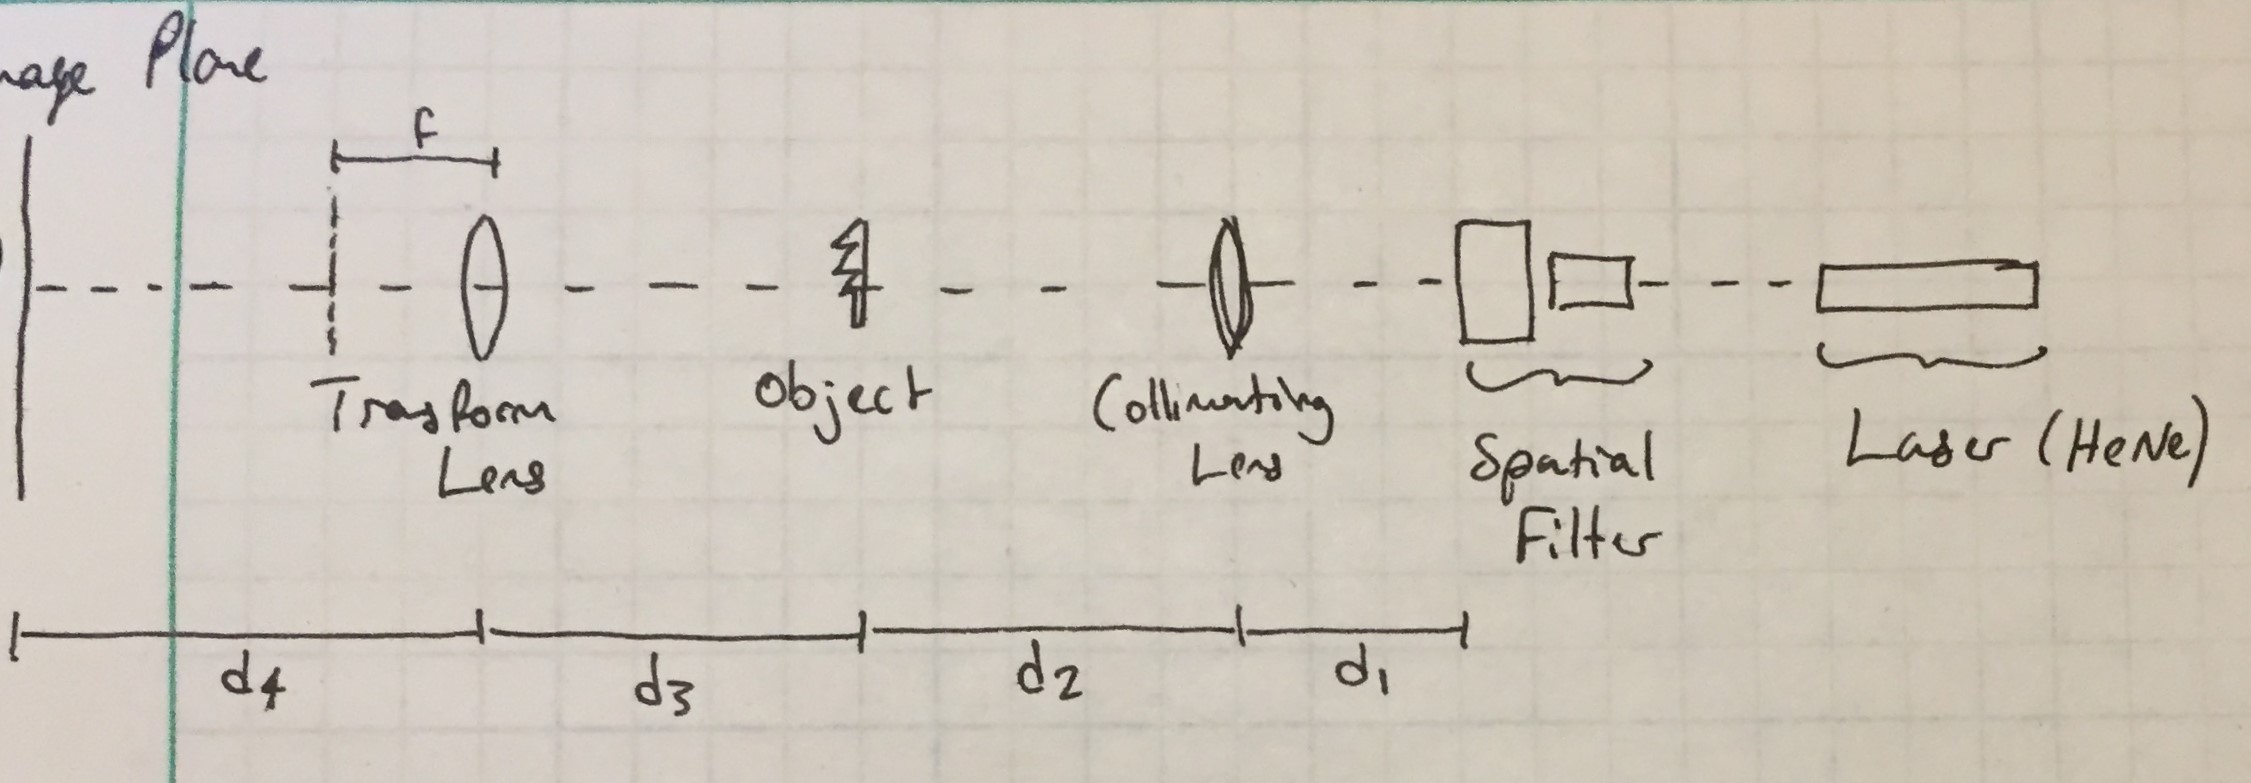 mage Plane
f
Transform
Lens
Object
Collimating
Lens
Spatial
Filter
Laser (HeNe)
d4
d3
d2
d1